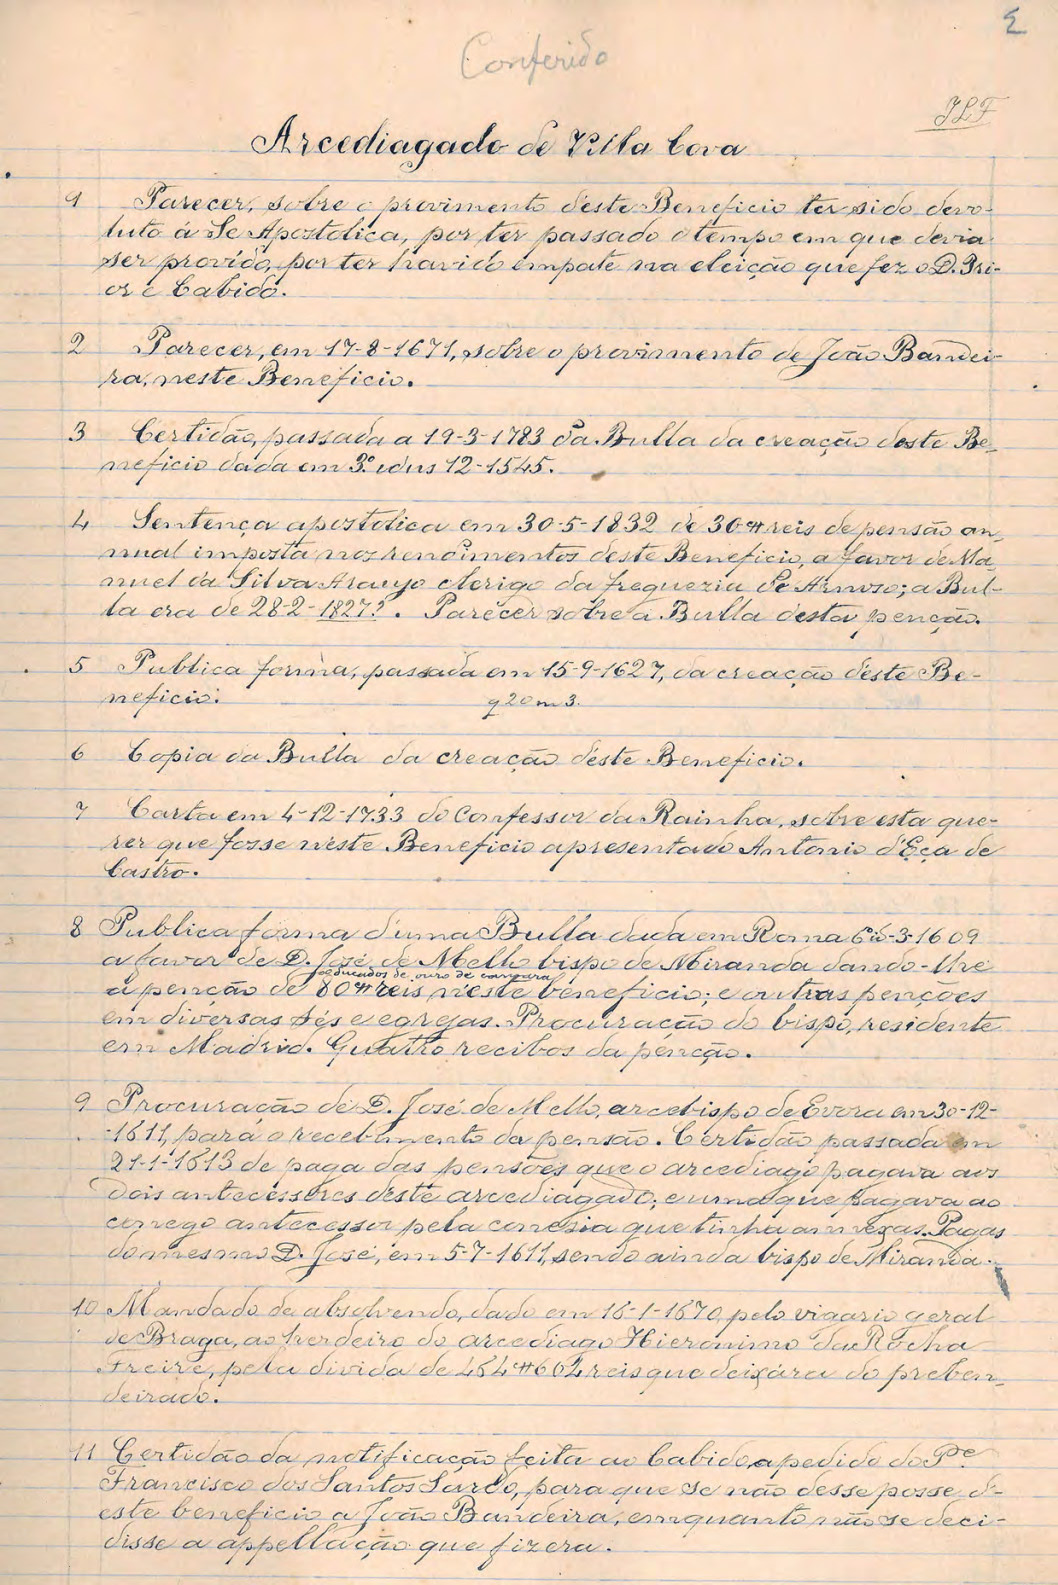 Conferido
JLF
Arcediagado de Villa Cova
1 Parecer, sobre o provimento d'este Beneficio ter sido devo-
luto á Sé Apostolica, por ter passado o tempo em que devia
ser provido, por ter havido empate na eleição que fez o D. Pri-
or e Cabido.
2 Parecer, em 17-8-1671, sobre o provimento de João Bandei-
ra, neste Beneficio.
3 Certidão, passada a 19-3-1783 da Bulla da creação deste Be-
neficio dada em 3.º idus 12-1545.
4 Sentença apostolica em 30-5-1832 de 30$reis de pensão an-
nual imposta nos rendimentos deste Beneficio, a favor de Ma-
nuel da Silva Araujo clerigo da freguezia de Arnoso; a Bul-
la era de 28-2-1827?. Parecer sobre a Bulla desta penção.
5 Publica forma, passada em 15-9-1627, da creação d'este Be-
neficio.
q 20 m 3.
6 Copia da Bulla da creação d'este Beneficio.
7 Carta em 4-12-1733 do Confessor da Rainha, sobre esta que-
rer que fosse n'este Beneficio apresentado Antonio d'Eça de
Castro.
8 Publica forma d'uma Bulla dada em Roma 6 id-3-1609
a favor de D. José de Mello bispo de Miranda dando-lhe
ducados de ouro de camara
a penção de 80$reis n'este beneficio; e outras penções
em diversas sés e egrejas. Procuração do bispo, residente
em Madrid. Quatro recibos da penção.
9 Procuração de D. José de Mello, arcebispo de Evora em 30-12-
-1611, para o recebimento da pensão. Certidão passada em
21-1-1613 de paga das pensões que o arcediago pagava aos
dois antecessores deste arcediagado; e uma que pagava ao
conego antecessor pela conesia que tinha annexas. Pagas
do mesmo D. José, em 5-7-1611, sendo ainda bispo de Miranda.
10 Mandado de absolvendo, dado em 16-1-1670, pelo vigario geral
de Braga, ao herdeiro do arcediago Hieronimo da Rocha
Freire, pela divida de 454$662 reis que deixára do preben-
deirado.
11 Certidão da notificação feita ao Cabido, a pedido do Pe.
Francisco dos Santos Sardo, para que se não desse posse d'
este beneficio a João Bandeira, emquanto não se deci-
disse a appellação que fizera.